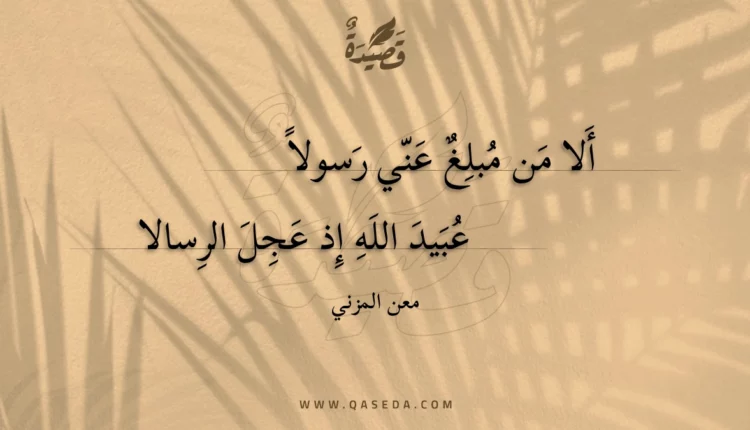 قَصِيدَةٌ
أَلا مَن مُبلِغٌ عَنّي رَسولاً
عُبَيدَ اللَهِ إِذ عَجِلَ الرِسالا
معن المزني
WWW.QASEDA.COM